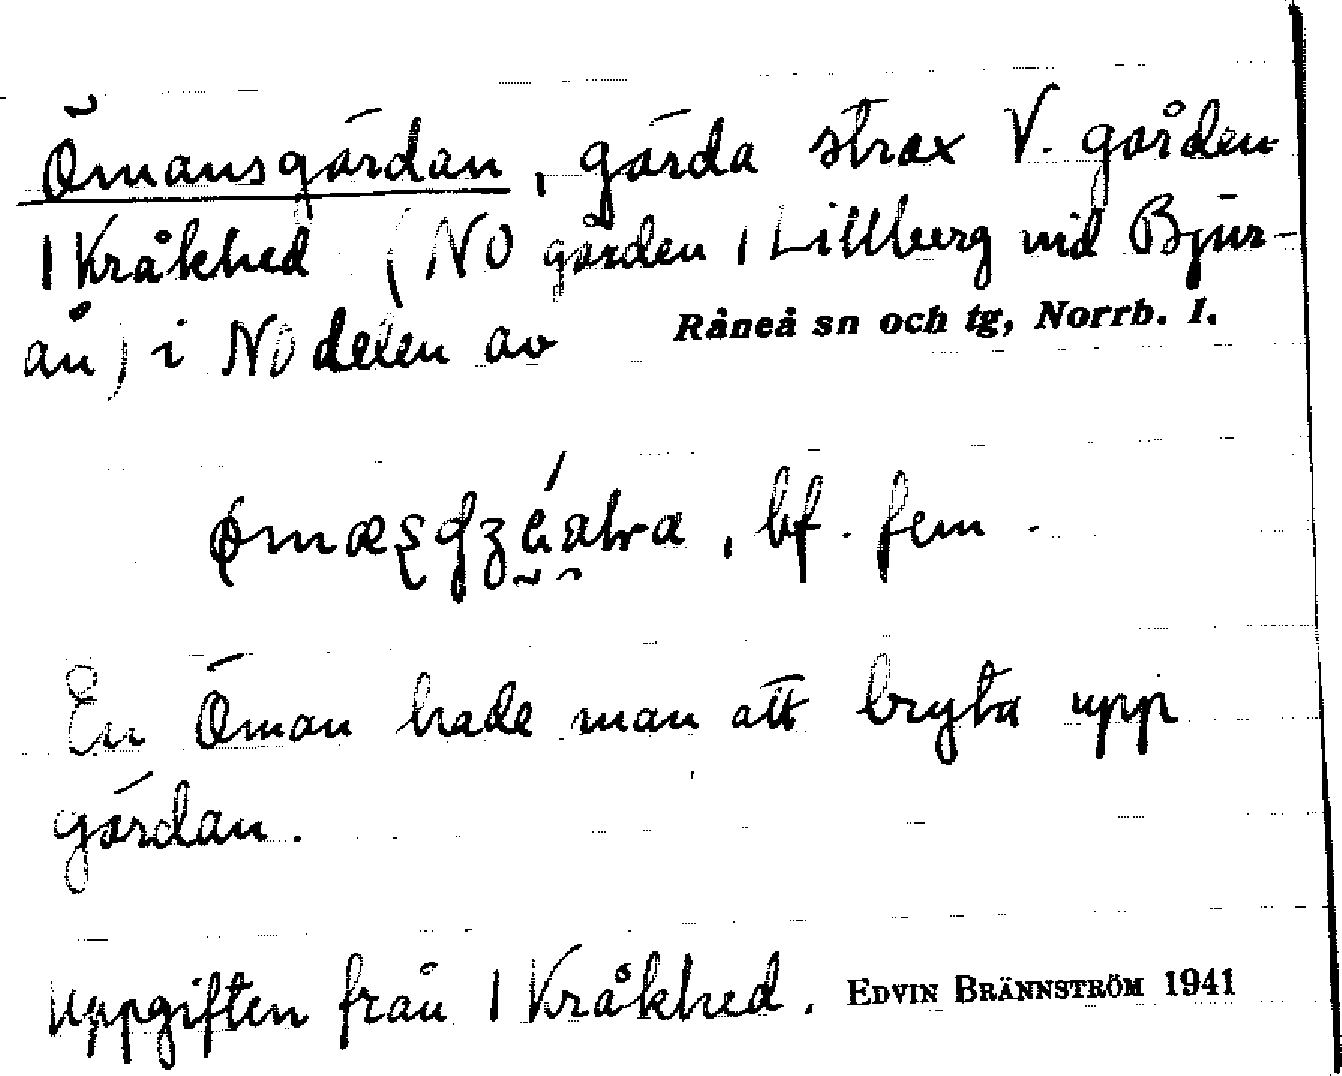 Ömansgärdan, gärda strax V. gården
1 Kråkhed (NO gården 1 Lillberg vid Bjur-
ån) i NO delen av Råneå sn och tg, Norrb. l.
bf. fem.
En Öman hade man att bryta upp
gärdan.
Uppgiften från 1 Kråkhed. EDVIN BRÄNNSTRÖM 1941